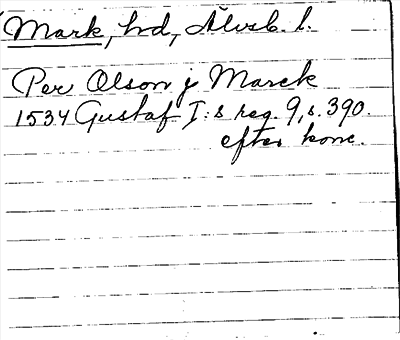 Mark, hd, Älvsb. l.
Per Olson j Marck
1534 Gustaf I:s reg. 9, s. 390.
efter konc.